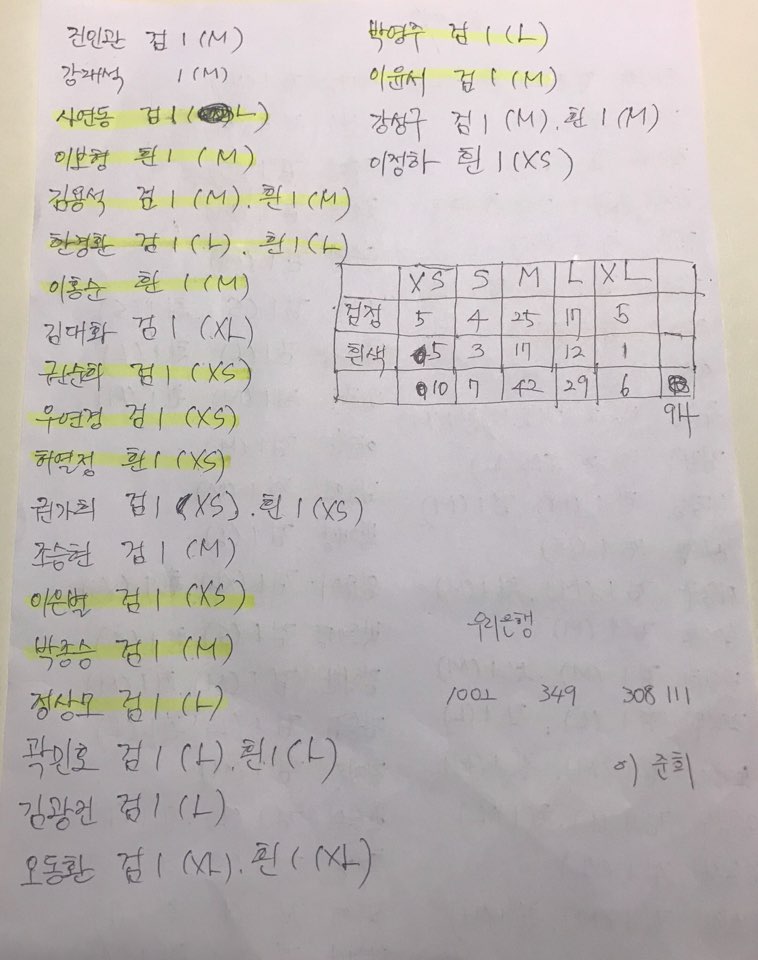 전인관 검 1 (M)
강재석 1 (M)
사연동 검 1 (L)
이보형 흰 1 (M)
김용석 검 1 (M). 흰 1 (M)
한경환 검 1 (L). 흰 1 (L)
이홍순 흰 1 (M)
김대화 검 1 (XL)
권순희 검 1 (XS)
우연경 검 1 (XS)
허열정 흰 1 (XS)
권가희 검 1 (XS). 흰 1 (XS)
조승현 검 1 (M)
이은별 검 1 (XS)
박종승 검 1 (M)
정상모 검 1 (L)
곽민호 검 1 (L). 흰 1 (L)
김광건 검 1 (L)
오동환 검 1 (XL). 흰 1 (XL)
박영주 검 1 (L)
이윤서 검 1 (M)
강성구 검 1 (M). 흰 1 (M)
이정하 흰 1 (XS)
XS S M L XL
검정 5 4 25 17 5
흰색 5 3 17 12 1
10 7 42 29 6
94
우리은행
1002 349 308111
이준희